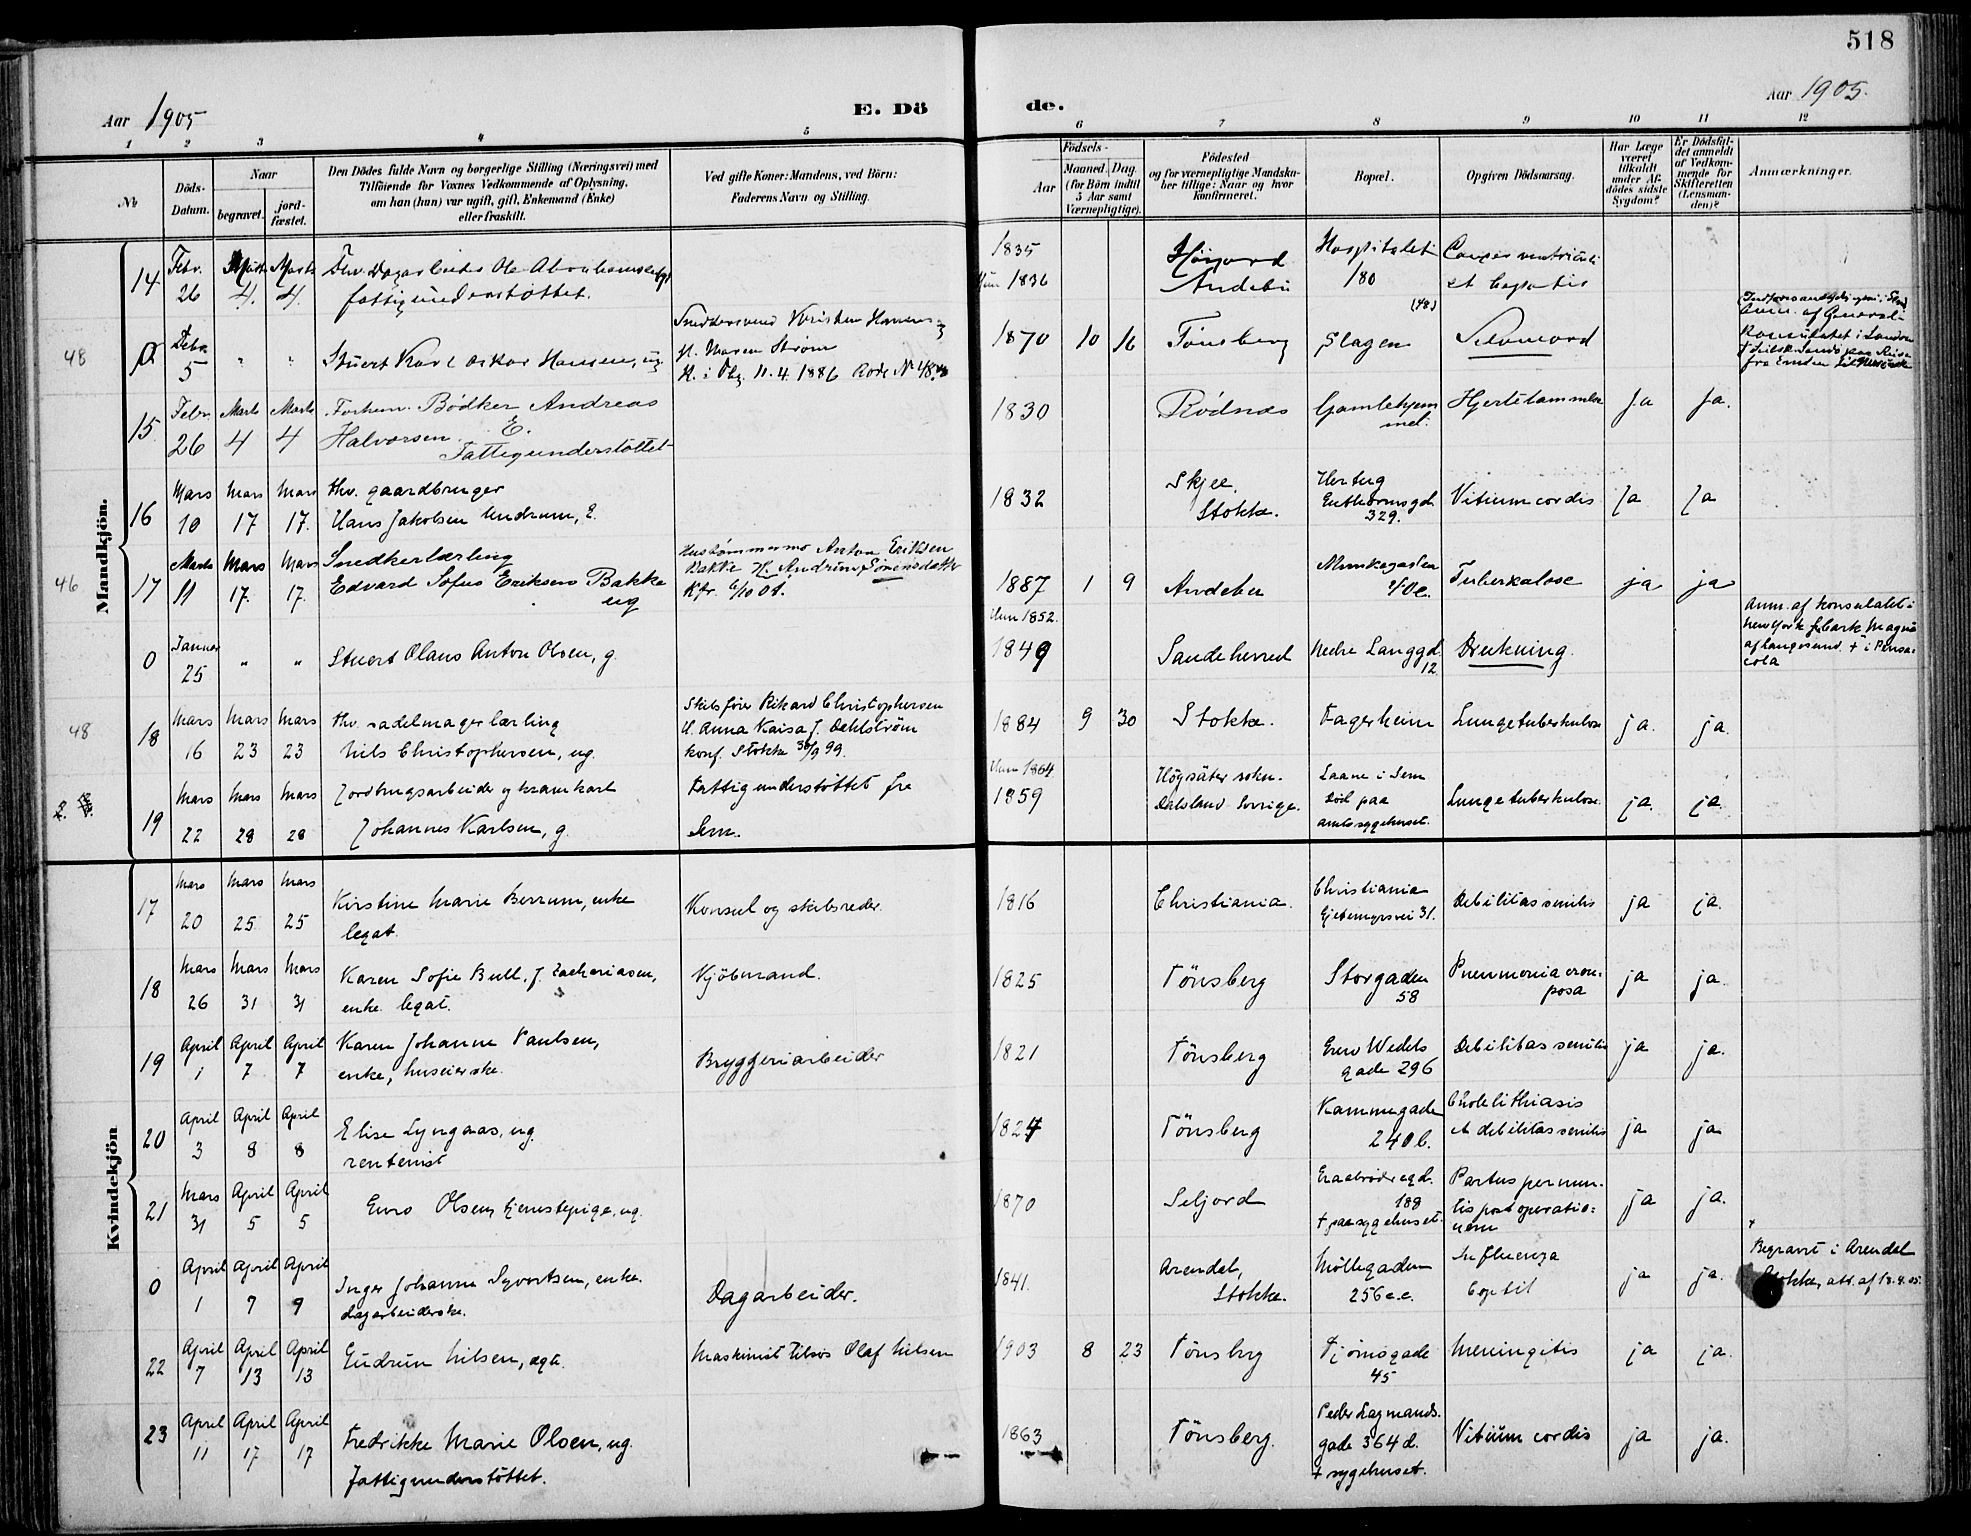 518
Aar 1905
E. Dö
de.
Aar 1905.
1 2 3 4 5 6 7 8 9 10 11 12
No
Döds-Datum.
Naar
begravet.
jord-fæstet.
Den Dödes fulde Navn og borgerlige Stilling (Næringsvei) med
Tilföiende for Voxnes Vedkommende af Oplysning,
om han (hun) var ugift, gift, Enkemand (Enke)
eller fraskilt.
Ved gifte Koner: Mandens, ved Börn:
Faderens Navn og Stilling.
Födsels-
Aar
Maaned. Dag.
(for Börn indtil
5 Aar samt
Værnepligtige).
Födested
og for værnepligtige Mandska-
ber tillige: Naar og hvor
konfirmeret.
Bopæl.
Opgiven Dödsaarsag.
Har Læge
været
tilkaldt
under Af-
dödes sidste
Sygdom?
Er Dödsfal-
det anmeldt
af Vedkom-
mende for
Skifteretten
(Lensman-
den)?
Anmærkninger.
Mandkjön.
14 Febr. 26 Marts 4. Marts 4.
fattigunderstøttet.
1835
1836
Andebu
Hospitalet
180
48
0 Febr. 5 " "
Stuert Karl Oskar Hansen, ug.
11.4.1886
1870 10 16 Tønsberg Slagen Selvmord
15. Febr. 26 Marts 4 Marts 4
Forhen. Bødker Andreas
Halvorsen E.
Fattigunderstøttet
1830 Rødnæs Gamlehjem
met. Ja Ja.
16 Mars 10 Mars 17 Mars 17.
fhv. gaardbruger
Hans Jakobsen Undrum, E.
1832 Skjee,
Stokke.
Hertug
329. Vitium cordis Ja Ja
46
17 Marts 11 Mars 17. Mars 17.
Snedkerlærling
Edvard Sofus Eriksen Bakke
ug
Anton Eriksen
Bakke H. Andrine Sørensdatter
1887 1 9 Andebu Munkegaden
Tuberkulose ja ja
0 Januar 25 " "
Stuert Olaus Anton Olsen, g.
Hun 1852.
1849 Sandeherred Nedre Langgd.
12. Drukning.
Anm. af konsulatet i
New York
48
18 Mars 16 Mars 23 Mars 23
fhv. sadelmagerlærling
Nils Christophersen, ug.
Skibsfører Rikard Christophersen
H. Anna Kaisa f. Dehlström
konf. Stokke 30/9 99.
1884 9 30 Stokke. Fagerheim Lungetuberkulose ja. ja.
19 Mars 22 Mars 28 Mars 28
Jordbrugsarbeider og kramkarl
Johannes Karlsen, g.
Fattigunderstøttet fra
Sem.
Hun 1864
1859 Högsäter sokn.
Dalsland. Sverige.
Laane i Sem
død paa
amtssygehuset.
Lungetuberkulose. ja. ja.
Kvindekjön
17 Mars 20 Mars 25 Mars 25
Kirstine Marie Berrum, enke
legat.
Konsul og skibsreder.
1816 Christiania. Christiania
Gjetemyrsvei 31. Debilitas senilis ja ja.
18 Mars 26 Mars 31 Mars 31
Karen Sofie Bull, f. Zachariasen,
enke. legat.
Kjöbmand.
1825 Tönsberg Storgaden
58 Pneumonia crou-
posa ja ja.
19 April 1 April 7 April 7
Karen Johanne Paulsen,
enke, huseierske.
Bryggeriarbeider
1821 Tönsberg Grev Wedels
gade 296 Debilitas senilis ja ja.
20 April 3 April 8 April 8
Elise Lyngaas, ug.
rentenist
1824 Tönsberg Kammegaden
240 b. Cholelithiasis
et debilitas senilis ja ja
21 Mars 31 April 5 April 5
Guro Olsen, tjenestepige, ug.
1870 Seljord Graabrødregd.
188
+ paa sygehuset. Partus
post operatio-
nem ja ja.
0 April 1 April 7 April 9
Inger Johanne Syvertsen, enke.
dagarbeiderske.
Dagarbeider.
1841. Arendal,
Stokke. Möllegaden
256 e.e. Influenza
ja ja.
Begravet i Arendal
Stokke, att. af 13.4.05.
22 April 7 April 13 April 13
Gudrun Nilsen, ægte.
Maskinist tilsøs Olaf Nilsen
1903 8 23 Tönsbrg Tjømøgade
45 Meningitis ja ja.
23 April 11 April 17 April 17
Fredrikke Marie Olsen, ug.
fattigunderstöttet.
1863 Tönsberg. Peder Lagmands-
gade 364 d.
+ sygehuset. Vitium cordis ja ja.